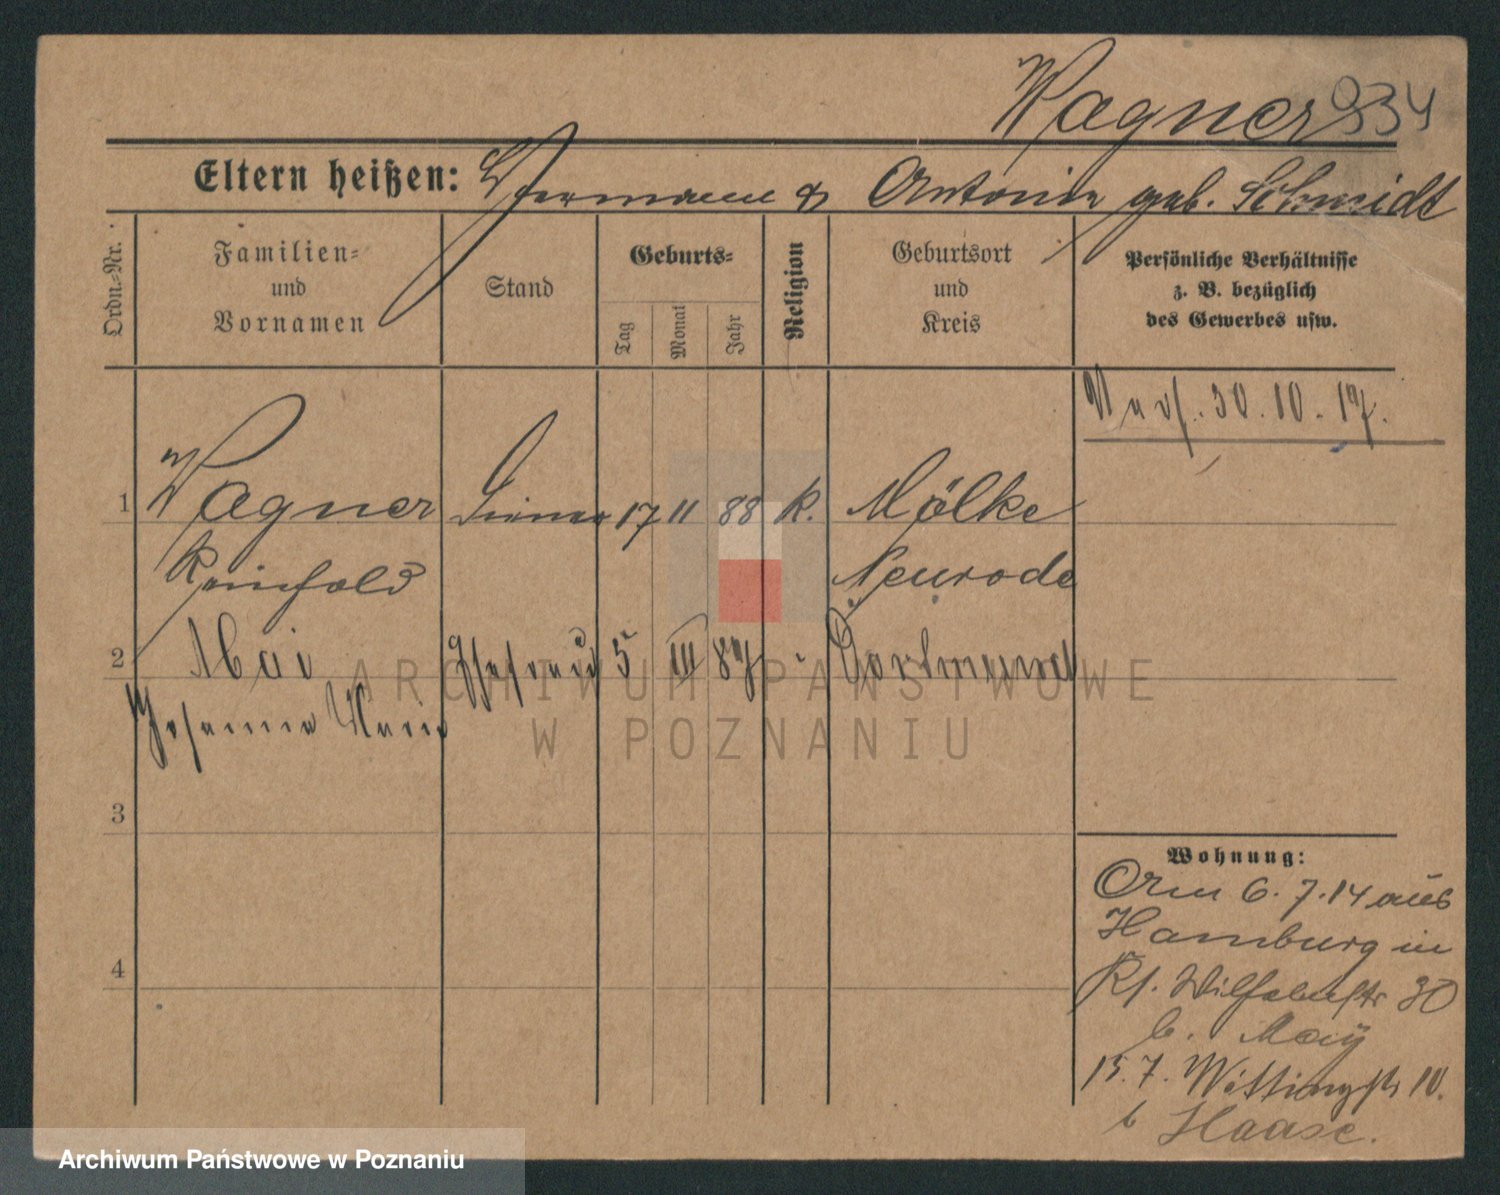 Wagner 934
Eltern heißen: Hermann & Antonie geb. Schmidt
Ordn.-Nr.
Familien-
und
Vornamen
Stand
Geburts-
Tag
Monat
Jahr
Religion
Geburtsort
und
Kreis
Persönliche Verhältnisse
z. B. bezüglich
des Gewerbes usw.
Verh. 30.10.17.
1 Wagner Diener 17 11 88 k. Mölke
Reinhold Neurode
2 Mai Ehefrau 5 III 87 - Dortmund
Johanna Marie
3
4
Wohnung:
6.7.14 aus
Hamburg in
30
b. May
15.7. Wittingstr 10.
b Haase.
ARCHIWUM PAŃSTWOWE
W POZNANIU
Archiwum Państwowe w Poznaniu